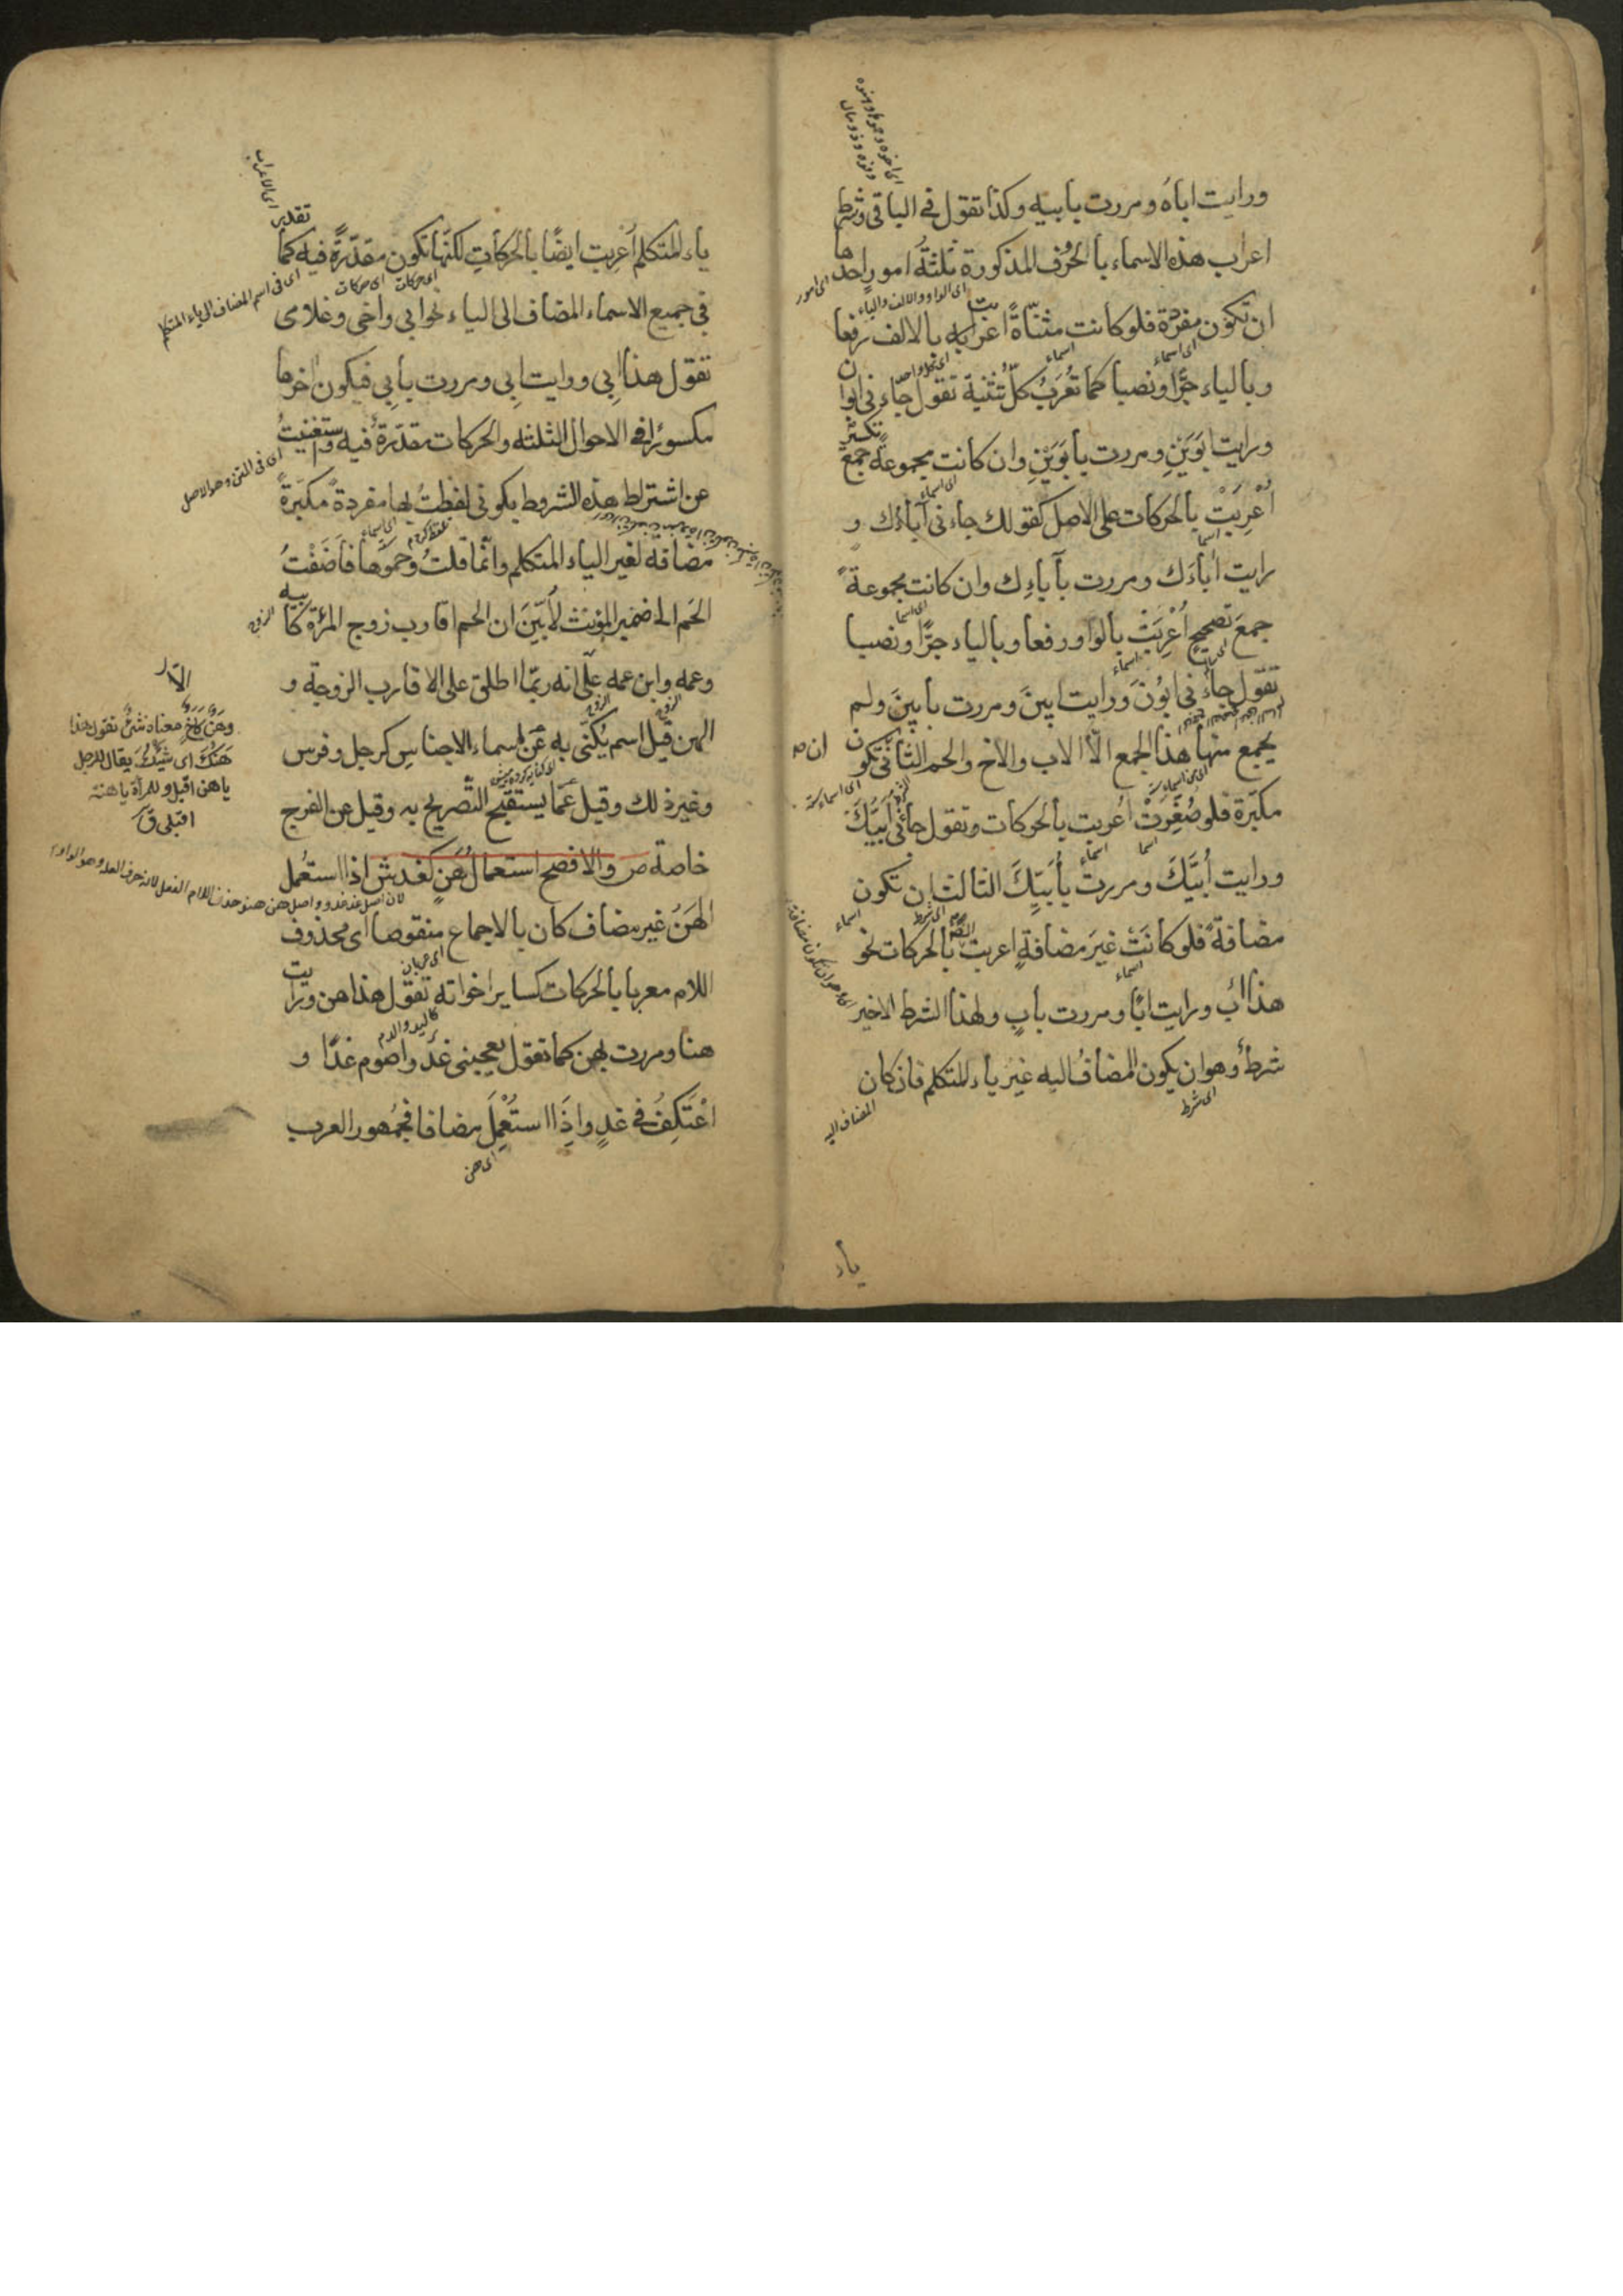 ورايت اباه ومررت بابيه وكذا تقول في الباقي وشرط
اعراب هذه الاسماء بالحرف المذكورة ثلثة امور احدها
ان تكون مفردة فلو كانت مثناة اعربت بالالف رفعا
وبالياء جرّا ونصبا كما تُعرَبُ كلّ تثنية تقول جاءني ابوان
ورايت ابوَيْنِ ومررت بابَوَيْنِ وان كانت مجموعة جمع تكسير
اُعْرِبَتْ بالحركات على الاصل كقولك جاءني آباءُك و
رايت اٰباءَك ومررت بآباءِك وان كانت مجموعةً
جمعَ تصحيحٍ اُعْرِبَتْ بالواو رفعا وبالياء جرًّا ونصبا
تقول جاءني ابُونَ ورايت ابِينَ ومررت بابِينَ ولم
يجمع منها هذا الجمع الّا الاب والاخ والحم الثاني ان تكون
مكبّرة فلو صُغِّرَتْ اُعربت بالحركات وتقول جاءني اُبَيُّكَ
ورايت اُبَيَّكَ ومررت بِاُبَيِّكَ الثالث ان تكون
مضافةً فلو كانَتْ غيرَ مضافةٍ اعربت بالحركات نحو
هذا ابٌ ورايت ابًا ومررت بابٍ ولهذا الشرط الاخير
شرطٌ وهو ان يكون المضافُ اليه غيرَ ياء المتكلم فان كان
اى شرط
المضاف اليه
ياء
ياء المتكلم اُعرِبت ايضًا بالحركاتِ لكنّها تكون مقدّرةً فيه كما تقدر
اى حركات
اى فى اسم المضاف الى ياء المتكلم
في جميع الاسماء المضاف الى الياء نحو ابي واخي وغلامي
تقول هذا ابِي ورايت ابِي ومررت بابِي فيكون اٰخرها
مكسورًا في الاحوال الثلثه والحركات مقدّرة فيه واستغنيتُ
عن اشتراط هذه الشروط بكوني لفظتُ بها مفردةً مكبّرةً
مضافة لغير الياء المتكلم وانّما قلتُ وحموها فاَضَفْتُ
الحَم الى ضمير المؤنث لاُبيّنَ ان الحم اقارب زوج المرْءة كابيه
وعمه وابن عمه على انه ربّما اطلق على الاقارب الزوجة و
الهن قيل اسم يُكنّى به عَن اسماء الاجناسِ كرجل وفرس
وغير ذلك وقيل عمّا يستقبح التّصريح به وقيل عن الفرج
خاصة ص والافصح استعمالُ هَنٍ كغَدٍ ش اذا استُعمل
الهَنُ غير مضاف كان بالاجماع منقوصا اى محذوف
اللام معربا بالحركات كساير اخواته تقول هذا هن ورايت
هنا ومررت بهن كما تقول يعجبني غدٌ واصوم غدًا و
اَعْتَكِفُ في غدٍ واِذَا استُعْمِلَ مضافا فجُمهور العرب
اى هن
وهَنٌ كاخٍ معناه شئٌ تقول هذا
هَنُكَ اى شَيْئُكَ يقال للرجل
يا هن اقبل وللمراة يا هنة
اقبلى ق